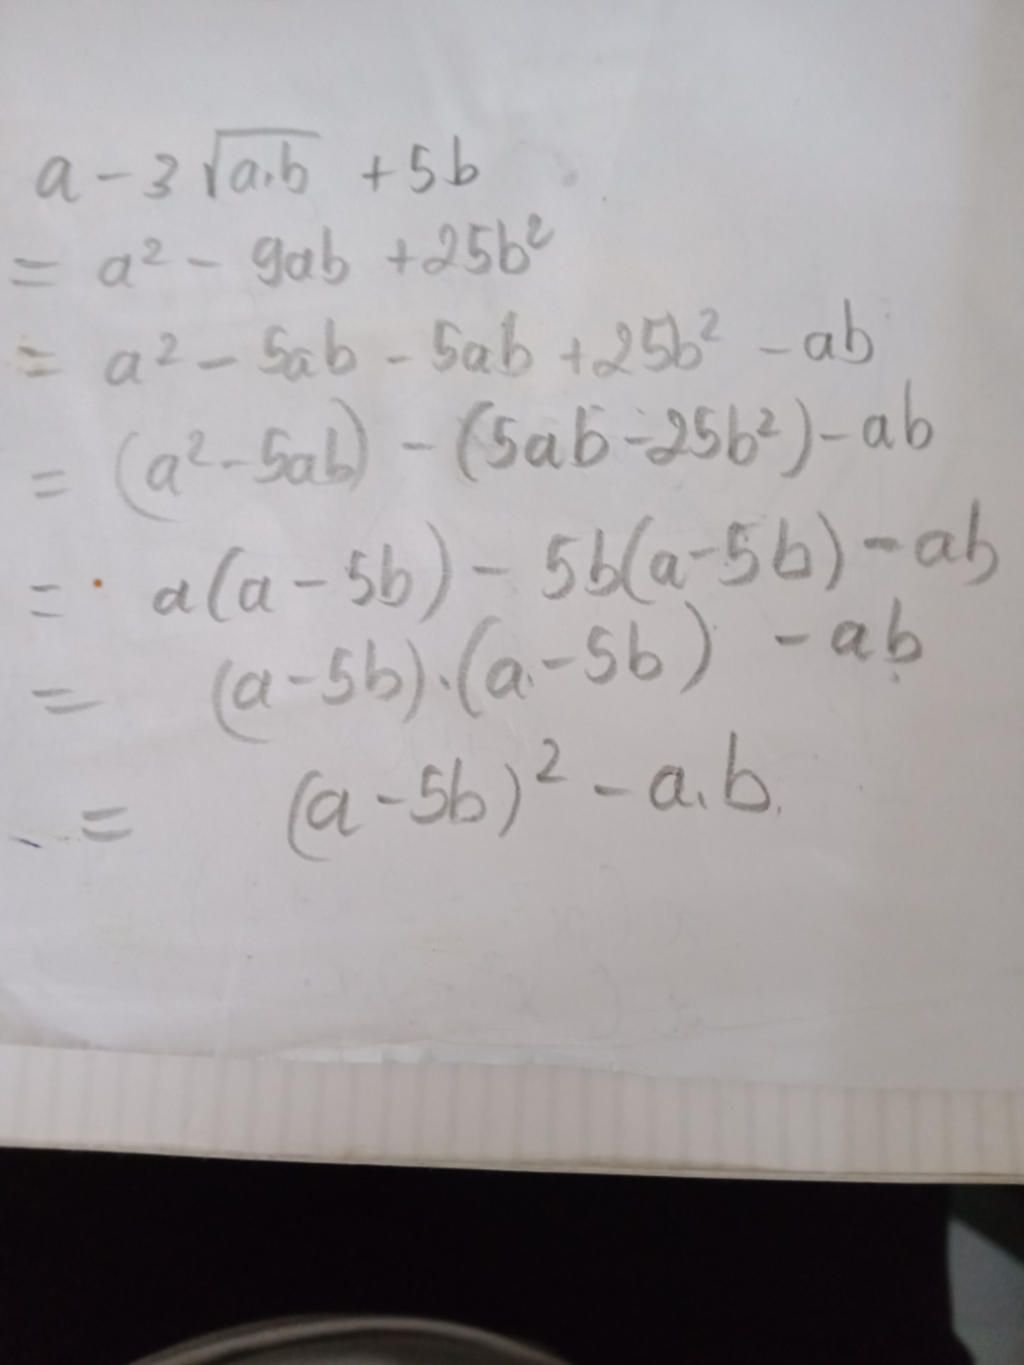 a - 3√a.b + 5b
= a² - 9ab + 25b²
= a² - 5ab - 5ab + 25b² - ab
= (a² - 5ab) - (5ab - 25b²) - ab
= a(a - 5b) - 5b(a - 5b) - ab
= (a - 5b).(a - 5b) - ab
= (a - 5b)² - a.b.